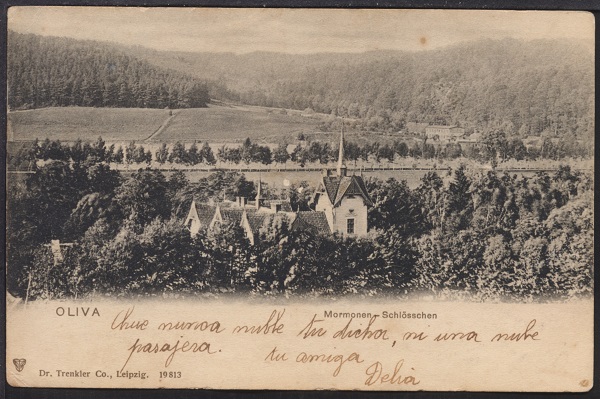 OLIVA
Mormonen-Schlösschen
Chue nunca nuble tu dicha, ni una nube
pasajera. tu amiga
Delia
Dr. Trenkler Co., Leipzig. 19813